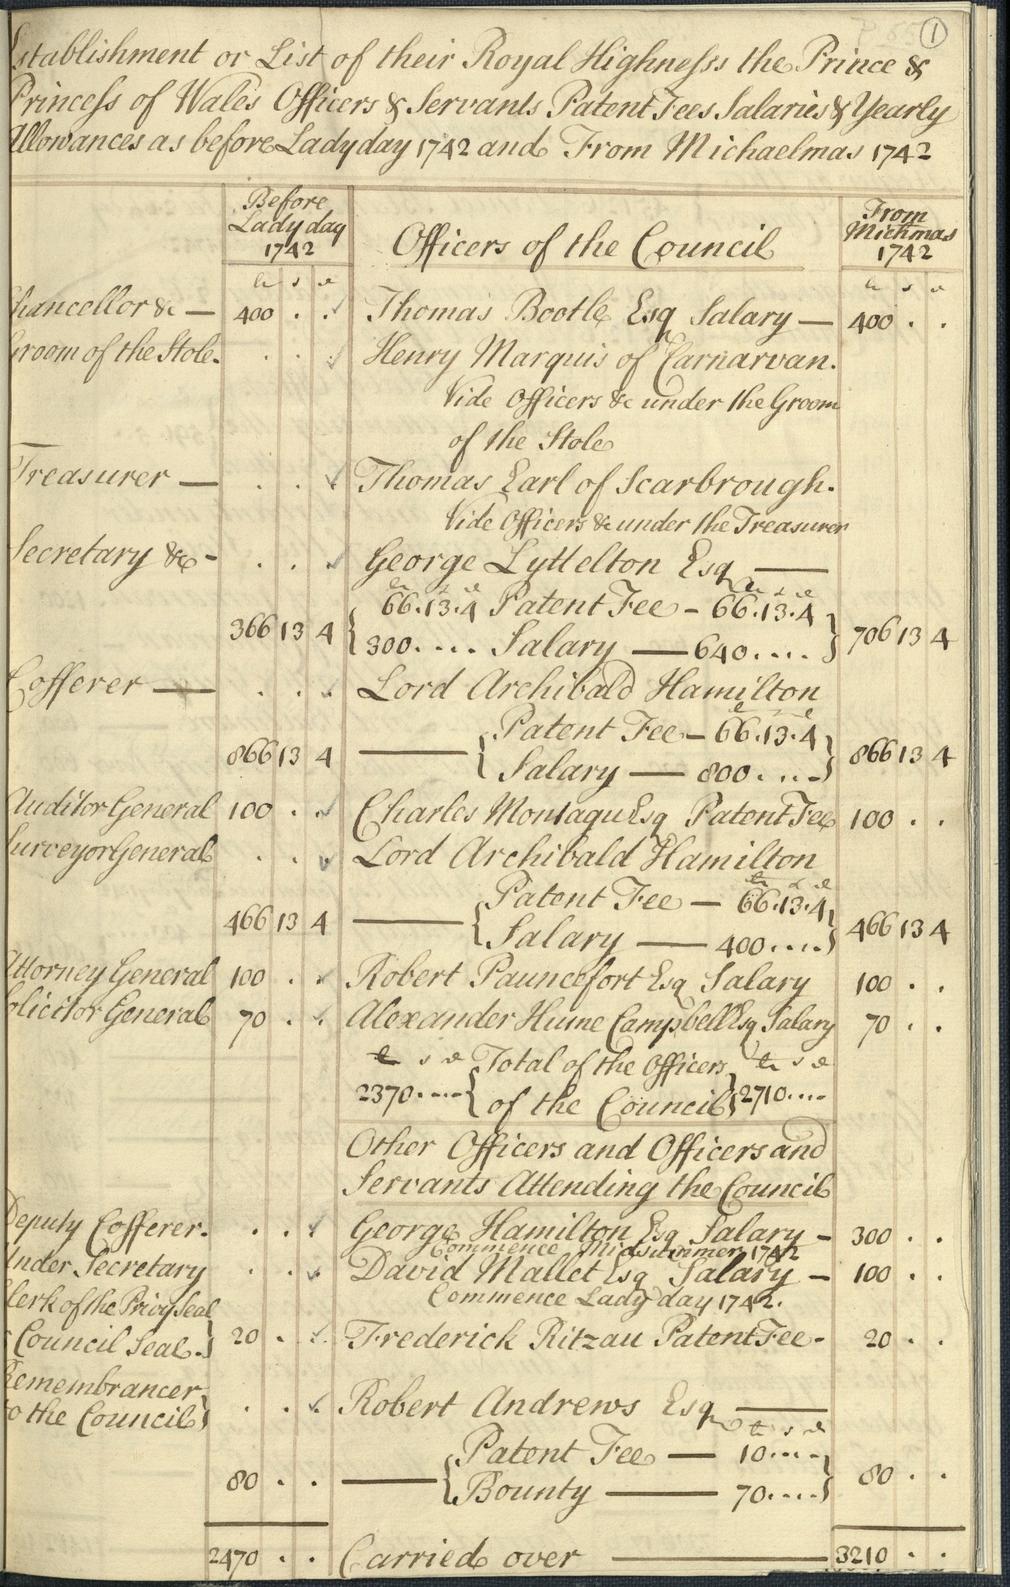 ①
Establishment or List of their Royal Highness the Prince &
Princess of Wales Officers & Servants Patent Fees Salaries & Yearly
Allowances as before Ladyday 1742 and From Michaelmas 1742
Before Lady day 1742
Officers of the Council
From Michmas 1742
£ s d £ s d
Chancellor &c — 400 . . Thomas Bootle Esq Salary — 400 . .
Groom of the Stole . . . Henry Marquis of Carnarvan.
Vide Officers &c under the Groom
of the Stole
Treasurer — . . . Thomas Earl of Scarbrough.
Vide Officers &c under the Treasurer
Secretary &c - . . . George Lyttelton Esq —
£ s d £ s d
66.13.4 Patent Fee - 66.13.4
366 13 4 { 300.... Salary — 640.... } 706 13 4
Cofferer — . . . Lord Archibald Hamilton
£ s d
Patent Fee - 66.13.4
866 13 4 — { Salary — 800.... } 866 13 4
Auditor General 100 . . Charles Montagu Esq Patent Fee 100 . .
Surveyor General . . . Lord Archibald Hamilton
£ s d
Patent Fee — 66.13.4
466 13 4 — { Salary — 400.... } 466 13 4
Attorney General 100 . . Robert Pauncefort Esq Salary 100 . .
Solicitor General 70 . . Alexander Hume Campbell Esq Salary 70 . .
£ s d Total of the Officers £ s d
2370.... { of the Council } 2710....
Other Officers and Officers and
Servants Attending the Council
Deputy Cofferer. . . . George Hamilton Esq Salary - 300 . .
Commence Midsummer 1742
Under Secretary . . . David Mallet Esq Salary - 100 . .
Commence Lady day 1742.
Clerk of the Privy Seal
& Council Seal. } 20 . . Frederick Ritzau Patent Fee - 20 . .
Remembrancer
to the Council } . . . Robert Andrews Esq —
£ s d
Patent Fee — 10....
80 . . — { Bounty — 70.... } 80 . .
2470 . . Carried over — 3210 . .